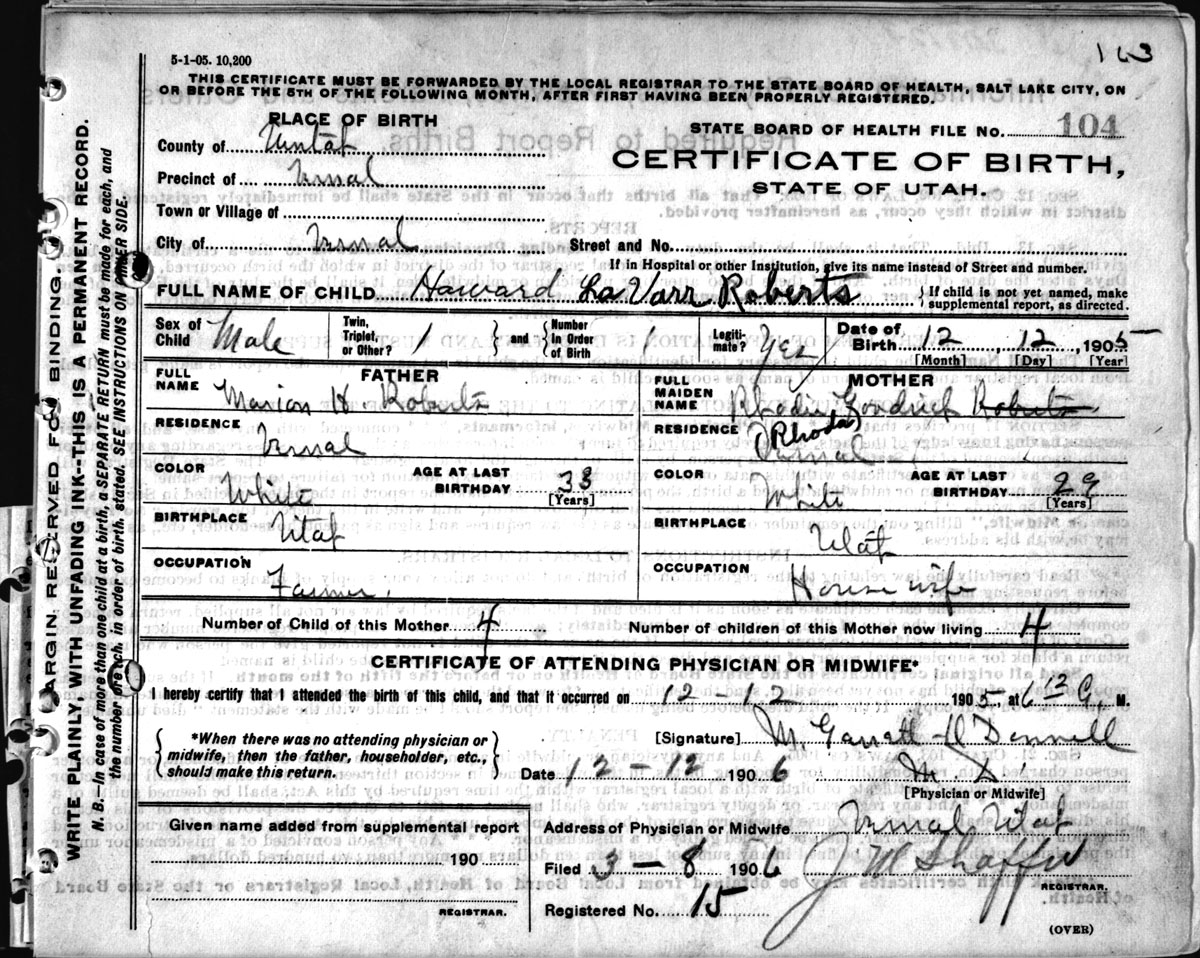 5-1-05. 10,200
163
THIS CERTIFICATE MUST BE FORWARDED BY THE LOCAL REGISTRAR TO THE STATE BOARD OF HEALTH, SALT LAKE CITY, ON
OR BEFORE THE 5TH OF THE FOLLOWING MONTH, AFTER FIRST HAVING BEEN PROPERLY REGISTERED.
PLACE OF BIRTH
STATE BOARD OF HEALTH FILE NO. 104
County of Uintah
CERTIFICATE OF BIRTH,
Precinct of Vernal
STATE OF UTAH.
Town or Village of
City of Vernal Street and No.
If in Hospital or other Institution, give its name instead of Street and number.
FULL NAME OF CHILD Howard LaVarr Roberts { If child is not yet named, make supplemental report, as directed.
Sex of Child Male Twin, Triplet, or Other? 1 } and { Number in Order of Birth 1 Legiti-mate? Yes Date of Birth 12 12 1905
[Month] [Day] [Year]
FATHER MOTHER
FULL NAME Marion H. Roberts FULL MAIDEN NAME Rhodie Goodrich Roberts
(Rhoda)
RESIDENCE Vernal RESIDENCE Vernal
COLOR White AGE AT LAST BIRTHDAY 33 [Years] COLOR White AGE AT LAST BIRTHDAY 29 [Years]
BIRTHPLACE Utah BIRTHPLACE Utah
OCCUPATION Farmer OCCUPATION Housewife
Number of Child of this Mother 4 Number of children of this Mother now living 4
CERTIFICATE OF ATTENDING PHYSICIAN OR MIDWIFE*
I hereby certify that I attended the birth of this child, and that it occurred on 12-12 1905 at 6 30 a. M.
{ *When there was no attending physician or midwife, then the father, householder, etc., should make this return. }
[Signature] M. Garrett
Date 12-12 1906 M D
[Physician or Midwife]
Given name added from supplemental report
Address of Physician or Midwife Vernal Utah
190
Filed 3-8 1906 J W Shaffer
REGISTRAR.
REGISTRAR.
Registered No. 15
(OVER)
MARGIN RESERVED FOR BINDING.
WRITE PLAINLY, WITH UNFADING INK--THIS IS A PERMANENT RECORD.
N. B. In case of more than one child at a birth, a SEPARATE RETURN must be made for each, and
the number of each, in order of birth, stated. SEE INSTRUCTIONS ON OTHER SIDE.